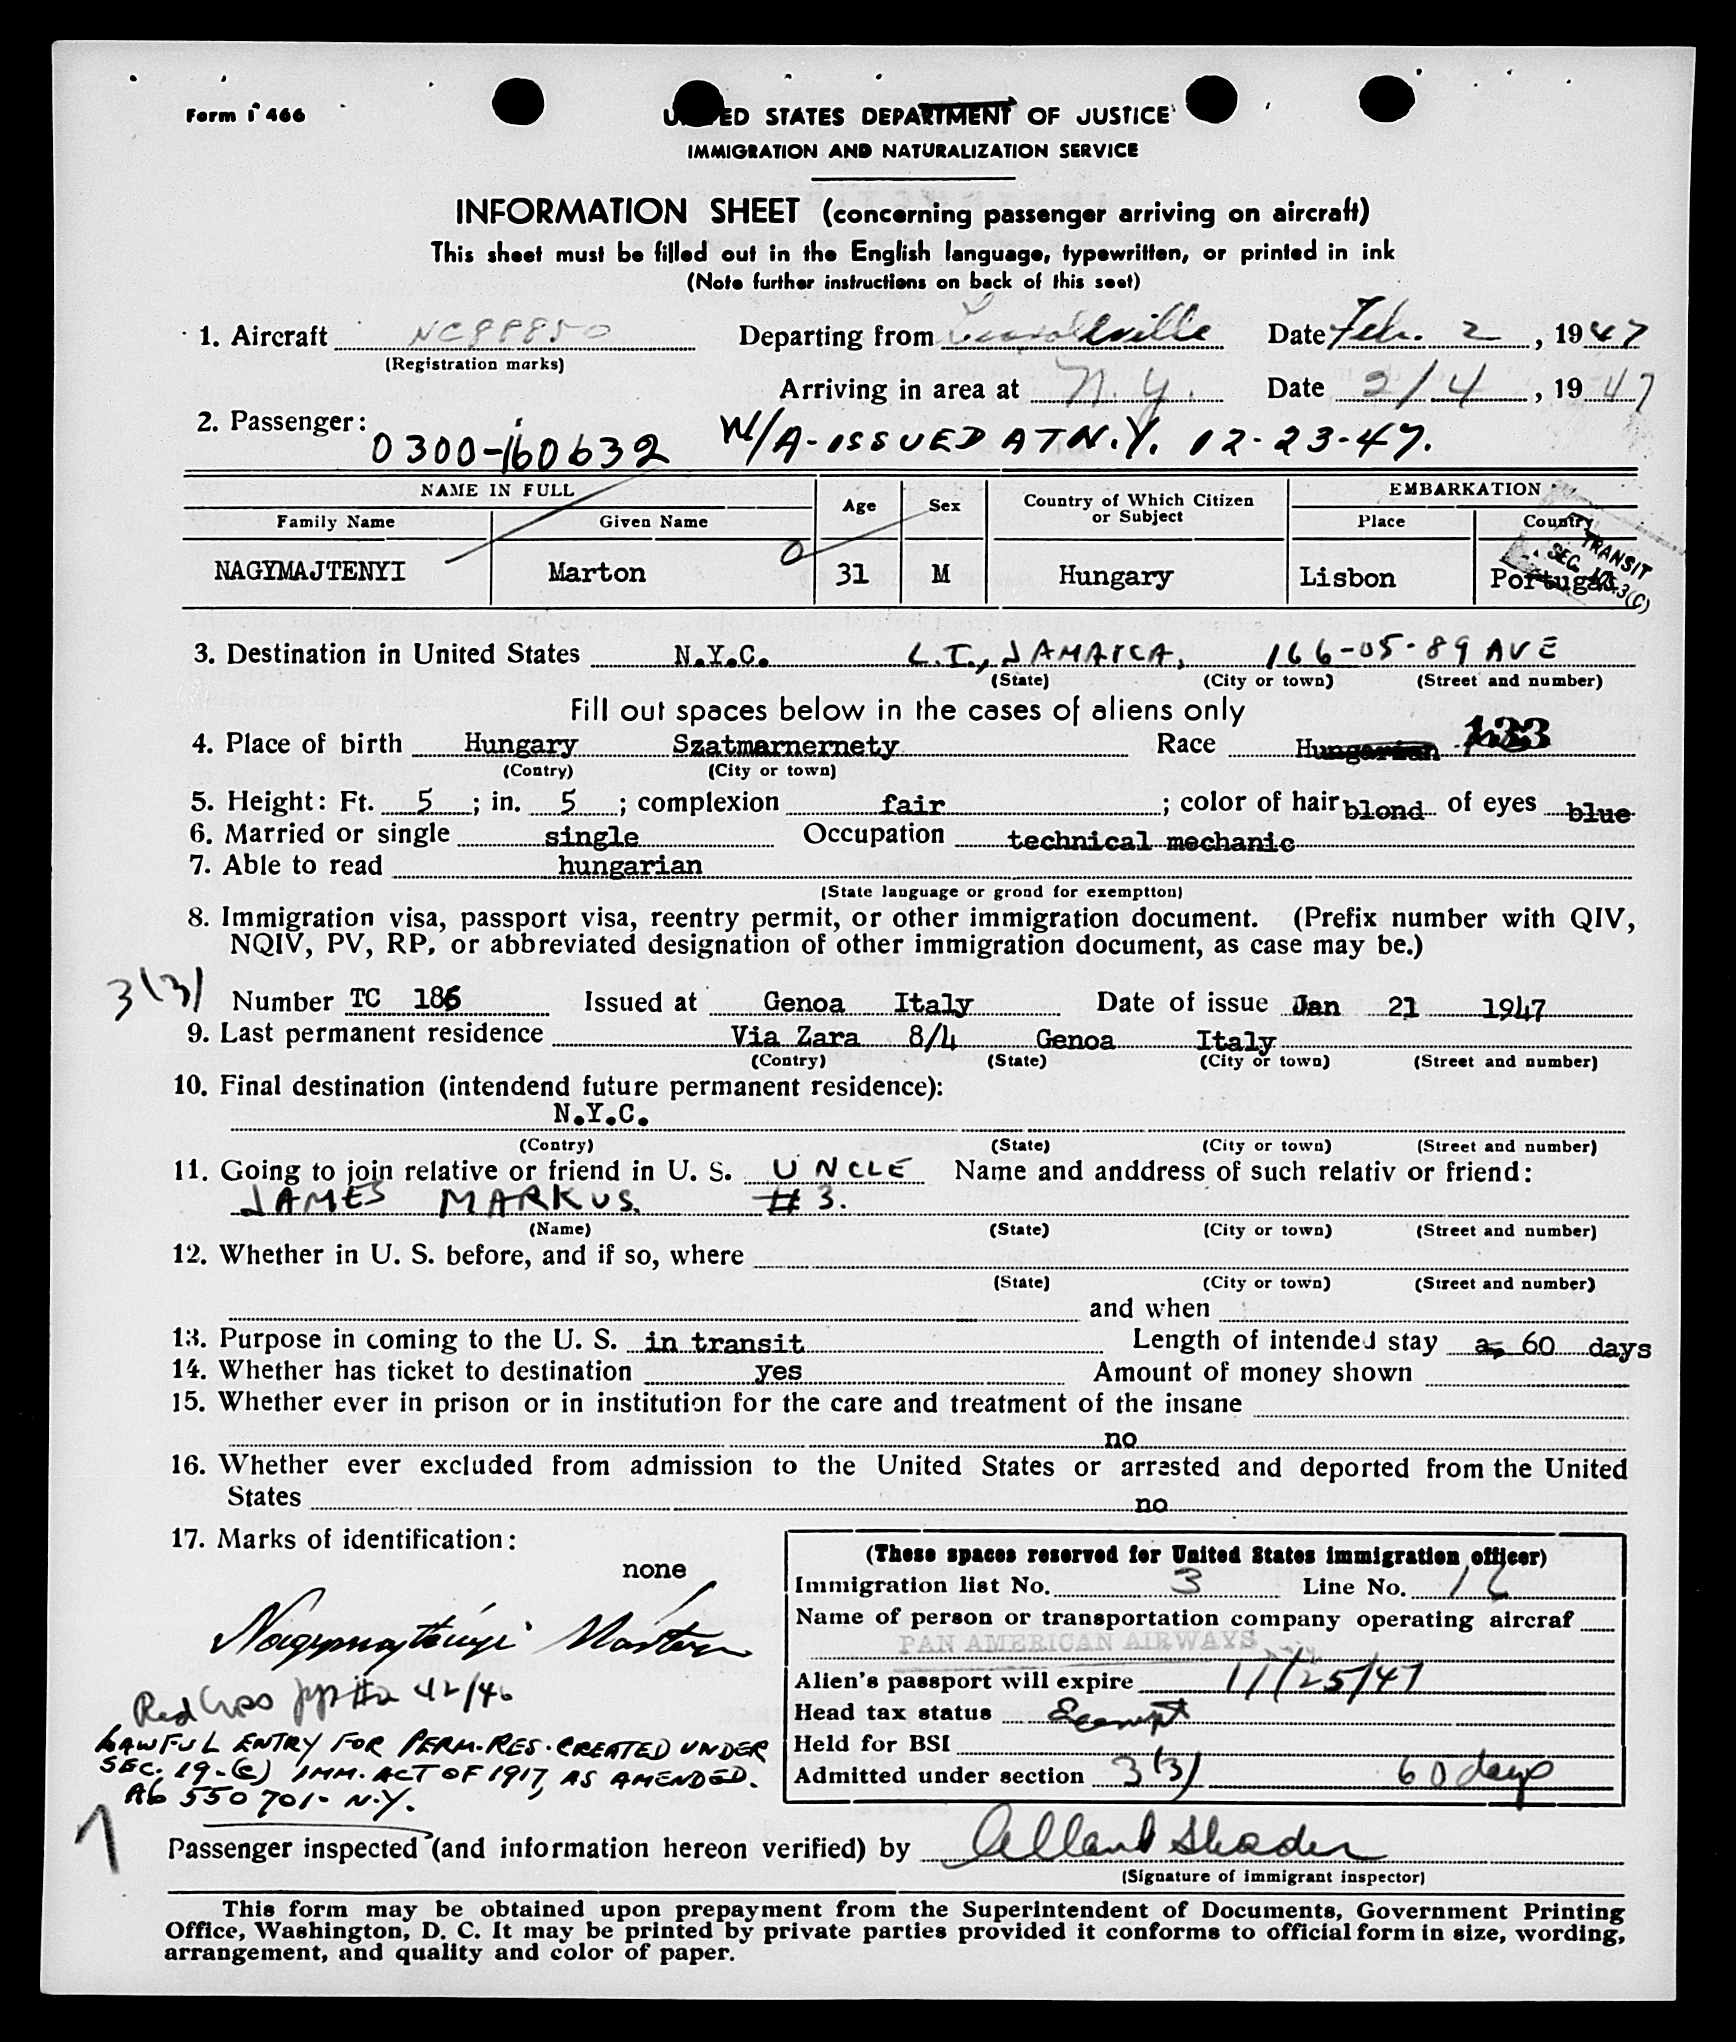 Form I 466
UNITED STATES DEPARTMENT OF JUSTICE
IMMIGRATION AND NATURALIZATION SERVICE
INFORMATION SHEET (concerning passenger arriving on aircraft)
This sheet must be filled out in the English language, typewritten, or printed in ink
(Note further instructions on back of this seet)
1. Aircraft NC88850 Departing from Date Feb. 2, 1947
(Registration marks)
Arriving in area at N.Y. Date 2/4, 1947
2. Passenger: 0300-160632 W/A-ISSUED AT N.Y. 12-23-47.
NAME IN FULL Age Sex Country of Which Citizen or Subject EMBARKATION
Family Name Given Name Place Country
NAGYMAJTENYI Marton 31 M Hungary Lisbon Portugal
TRANSIT
SEC.
3(C)
3. Destination in United States N.Y.C. L.I., JAMAICA, 166-05-89 AVE
(State) (City or town) (Street and number)
Fill out spaces below in the cases of aliens only
4. Place of birth Hungary Szatmarnernety Race Hungarian 133
(Contry) (City or town)
5. Height: Ft. 5; in. 5; complexion fair; color of hair blond of eyes blue
6. Married or single single Occupation technical mechanic
7. Able to read hungarian
(State language or grond for exemptton)
8. Immigration visa, passport visa, reentry permit, or other immigration document. (Prefix number with QIV,
NQIV, PV, RP, or abbreviated designation of other immigration document, as case may be.)
3(3) Number TC 186 Issued at Genoa Italy Date of issue Jan 21 1947
9. Last permanent residence Via Zara 8/4 Genoa Italy
(Contry) (State) (City or town) (Street and number)
10. Final destination (intendend future permanent residence):
N.Y.C.
(Contry) (State) (City or town) (Street and number)
11. Going to join relative or friend in U. S. UNCLE Name and anddress of such relativ or friend:
JAMES MARKUS. #3.
(Name) (State) (City or town) (Street and number)
12. Whether in U. S. before, and if so, where
(State) (City or town) (Street and number)
and when
13. Purpose in coming to the U. S. in transit Length of intended stay 60 days
14. Whether has ticket to destination yes Amount of money shown
15. Whether ever in prison or in institution for the care and treatment of the insane
no
16. Whether ever excluded from admission to the United States or arrested and deported from the United
States no
17. Marks of identification:
none
Nagymajtényi Márton
Red Cross
LAWFUL ENTRY FOR PERM. RES. CREATED UNDER
SEC. 19-(c) IMM. ACT OF 1917, AS AMENDED.
A6 550 701- N.Y.
(These spaces reserved for United States immigration officer)
Immigration list No. 3 Line No.
Name of person or transportation company operating aircraf
PAN AMERICAN AIRWAYS
Alien's passport will expire 11/25/47
Head tax status Exempt
Held for BSI
Admitted under section 3(3) 60 days
Passenger inspected (and information hereon verified) by
(Signature of immigrant inspector)
This form may be obtained upon prepayment from the Superintendent of Documents, Government Printing
Office, Washington, D. C. It may be printed by private parties provided it conforms to official form in size, wording,
arrangement, and quality and color of paper.